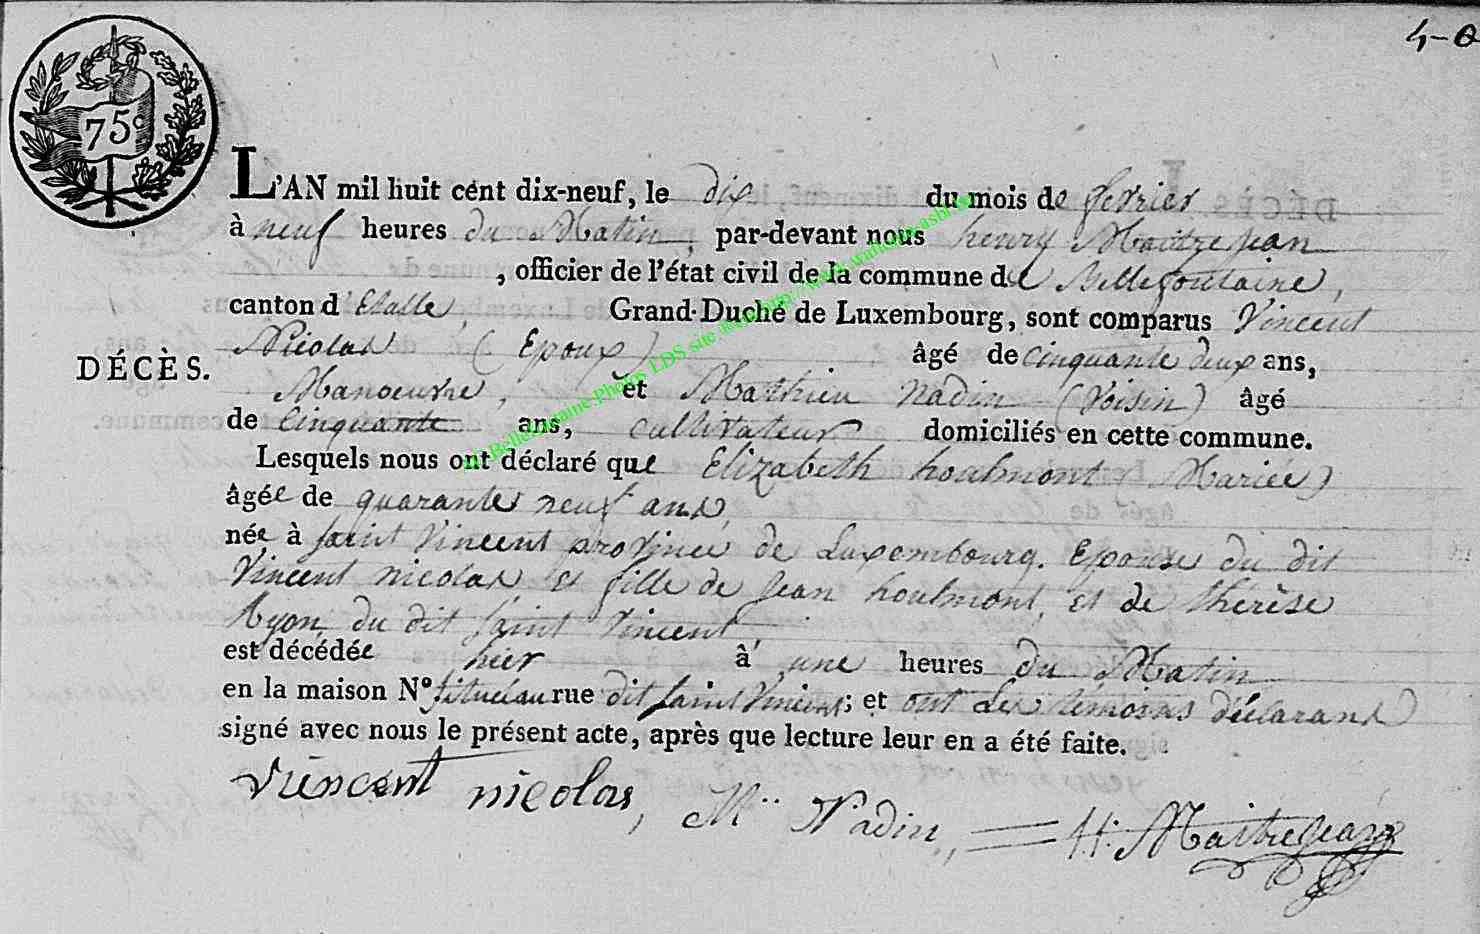 4-0
75c
L'AN mil huit cent dix-neuf, le dix du mois de fevrier
à neuf heures du Matin, par-devant nous henry Maitrejean
, officier de l'état civil de la commune de Bellefontaine,
canton d'Etalle, Grand-Duché de Luxembourg, sont comparus Vincent
Nicolas (Epoux) âgé de cinquante deux ans,
DÉCÈS.
Manoeuvre, et Mathieu Nadin (Voisin) âgé
de Cinquante ans, cultivateur domiciliés en cette commune.
Lesquels nous ont déclaré que Elizabeth houlmont (Mariée)
âgée de quarante neuf ans,
née à saint Vincent province de Luxembourg. Epouse du dit
Vincent nicolas, et fille de Jean houlmont, et de thérèse
du dit saint Vincent,
est décédée hier à une heures du Matin
en la maison N° située au rue dit saint Vincent; et ont Les témoins déclarans
signé avec nous le présent acte, après que lecture leur en a été faite.
Vincent nicolas, M.. Nadin, H: Maitrejean